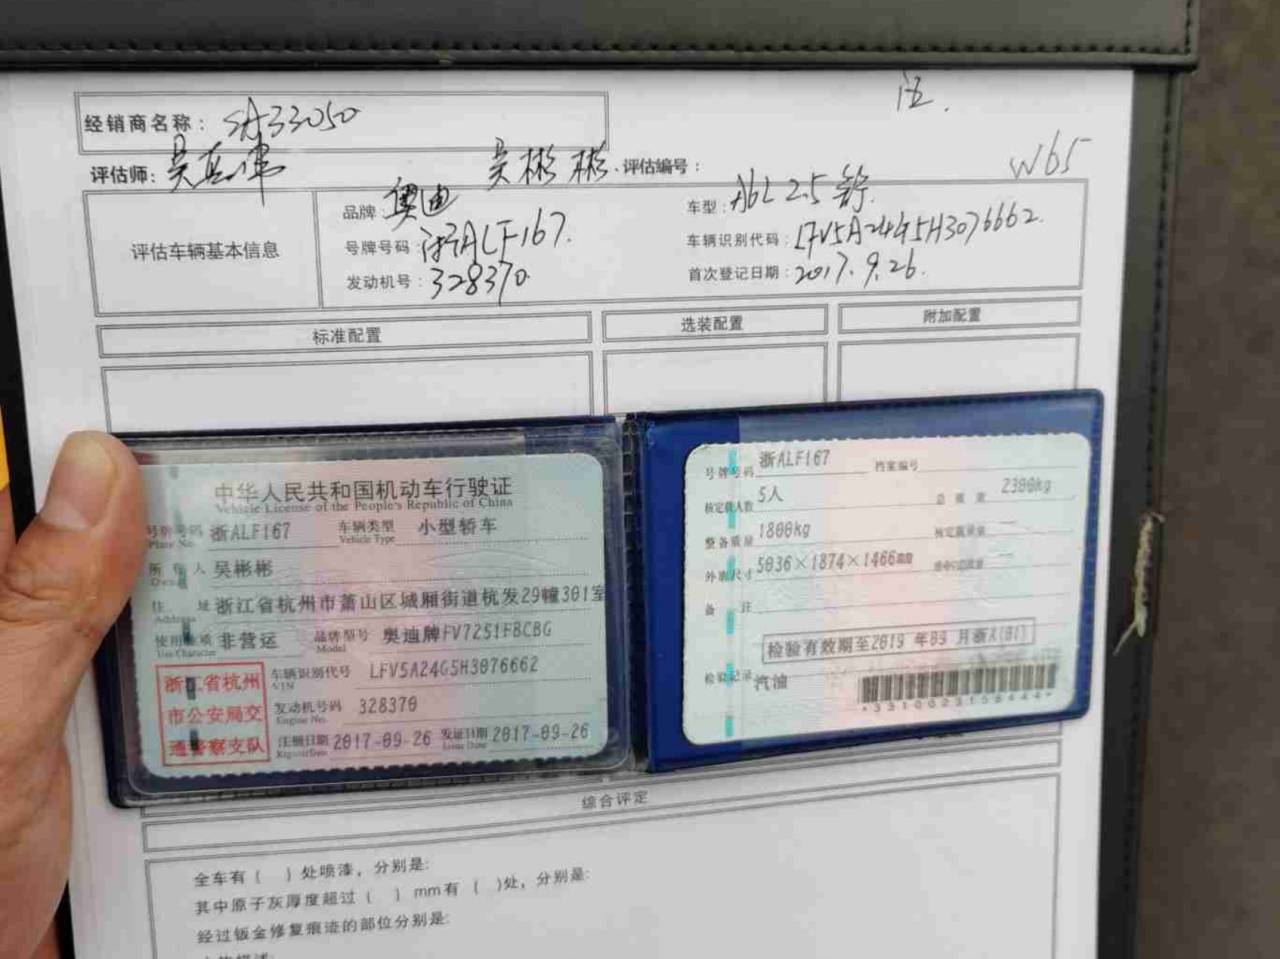 江.
经销商名称： SA33050
评估师: 吴 吴彬彬. 评估编号： W65
评估车辆基本信息
品牌: 奥迪 车型: A6L 2.5
号牌号码: 浙ALF167. 车辆识别代码: LFV5A24G5H3076662.
发动机号: 328370. 首次登记日期: 2017.9.26.
标准配置 选装配置 附加配置
中华人民共和国机动车行驶证
Vehicle License of the People's Republic of China
号牌号码 浙ALF167 车辆类型 小型轿车
Plate No. Vehicle Type
所有人 吴彬彬
Owner
住址 浙江省杭州市萧山区城厢街道杭发29幢301室
Address
使用性质 非营运 品牌型号 奥迪牌FV7251FBCBG
Use Character Model
浙江省杭州市公安局交通警察支队
车辆识别代号 LFV5A24G5H3076662
VIN
发动机号码 328370
Engine No.
注册日期 2017-09-26 发证日期 2017-09-26
Register Date Issue Date
号牌号码 浙ALF167 档案编号
核定载人数 5人 总质量 2300kg
整备质量 1800kg 核定载质量 --
外廓尺寸 5036×1874×1466mm 准牵引总质量 --
备注
检验有效期至2019年09月浙A(01)
检验记录 汽油
综合评定
全车有（ ）处喷漆，分别是:
其中原子灰厚度超过（ ）mm有（ ）处，分别是:
经过钣金修复痕迹的部位分别是: